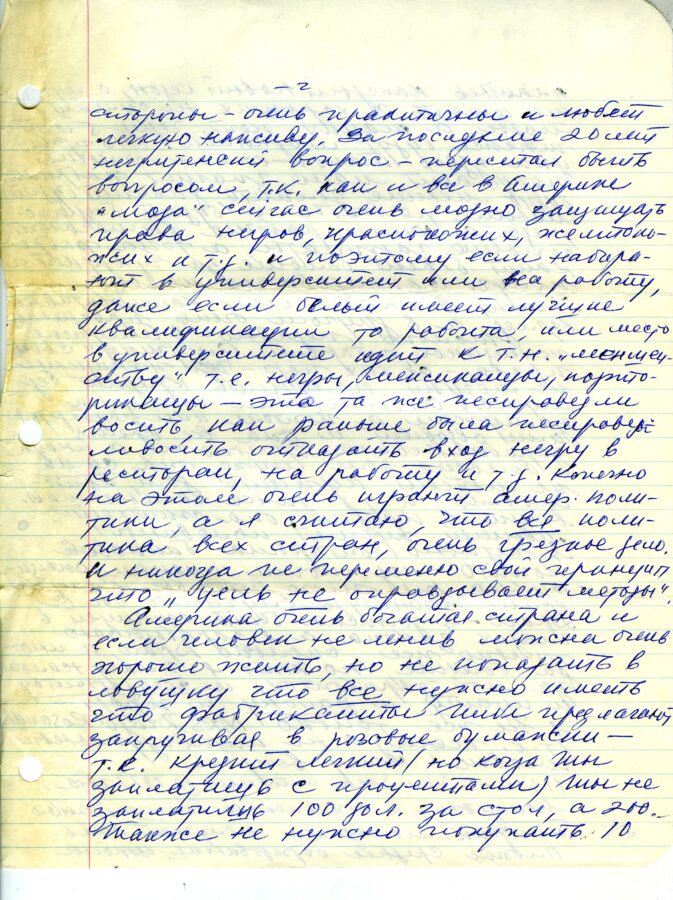 –2
стороны – очень практичны и любят
легкую наживу. За последние 20 лет
негритенский вопрос – перестал быть
вопросом, т.к. как и все в Америке
"мода" сейчас очень модно защищать
права негров, краснокожих, желтоко-
жих и т.д. и поэтому если набира-
ют в университет или на работу,
даже если белый имеет лучшие
квалификации то работа, или место
в университете идет к т.н. "меньшен-
ству" т.е. негры, мексиканцы, порто-
риканцы – эта та же несправедли
вость, как раньше была несправед
ливость отказать вход негру в
ресторан, на работу и т.д. Конечно
на этом очень играют амер. поли-
тики, а я считаю, что все поли-
тика всех стран, очень грязное дело.
и никогда не переменю свой принцип
что "цель не оправдывает методы".
Америка очень богатая страна и
если человек не ленив можно очень
хорошо жить, но не попадать в
ловушку что все нужно иметь
что фабриканты тебе предлагают
закручивая в розовые бумажки –
т.к. кредит легкий (но когда ты
заплатишь с процентами) ты не
заплатишь 100 дол. за стол, а 200.–
Также не нужно покупать 10